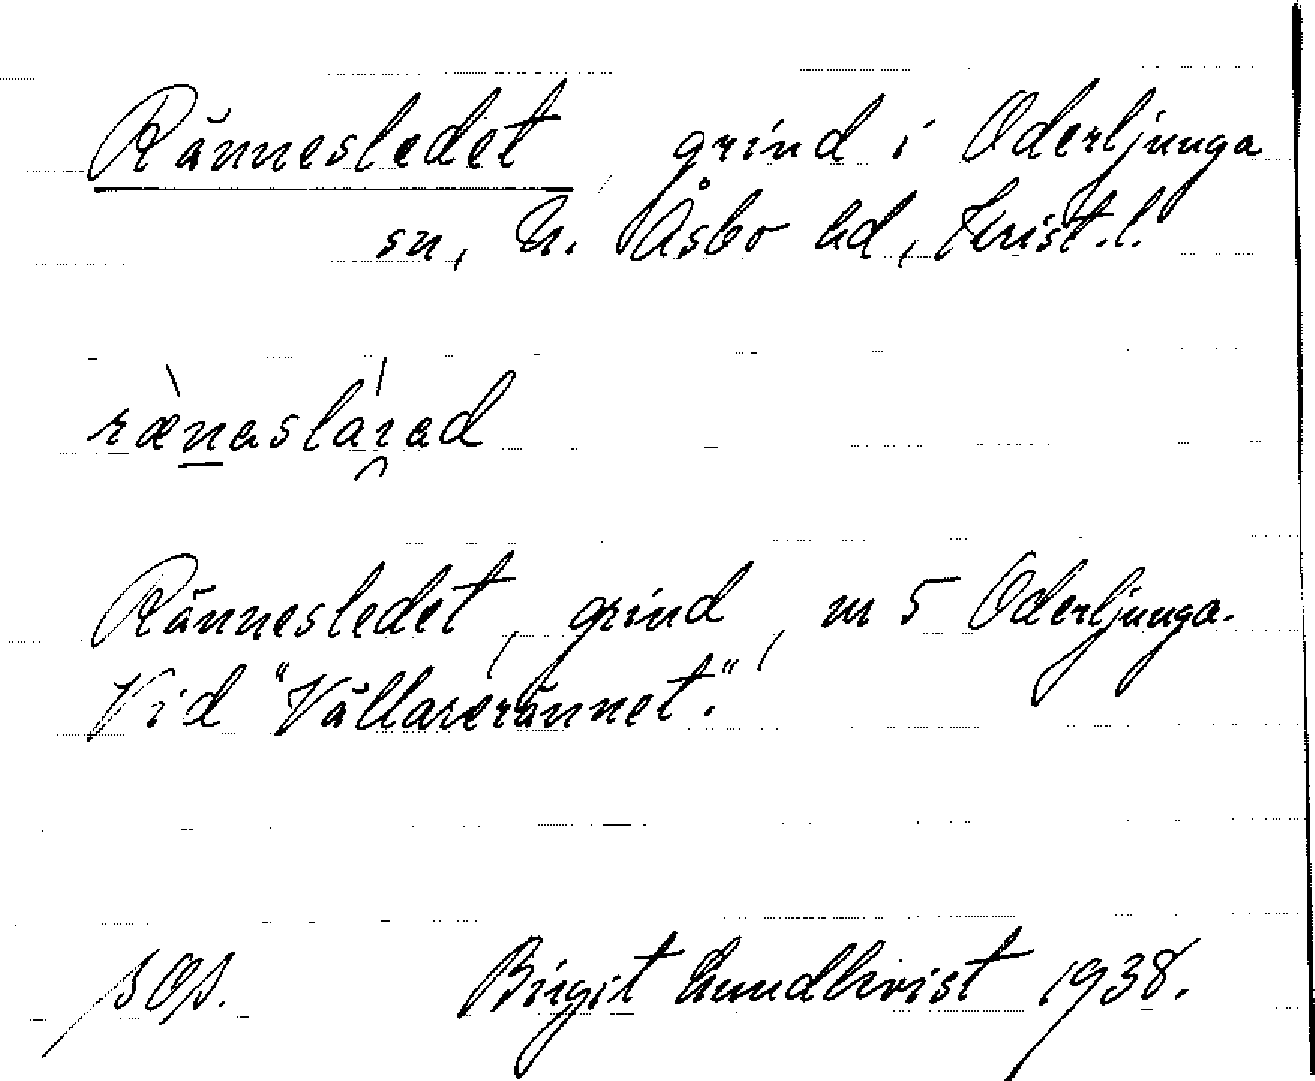 Rännesledet, grind i Oderljunga
sn, N. Åsbo hd, Krist. l.
rænaslarad
Rännesledet, grind, m 5 Oderljunga.
Vid "Vållarerännet".
Birgit Lundkvist 1938.